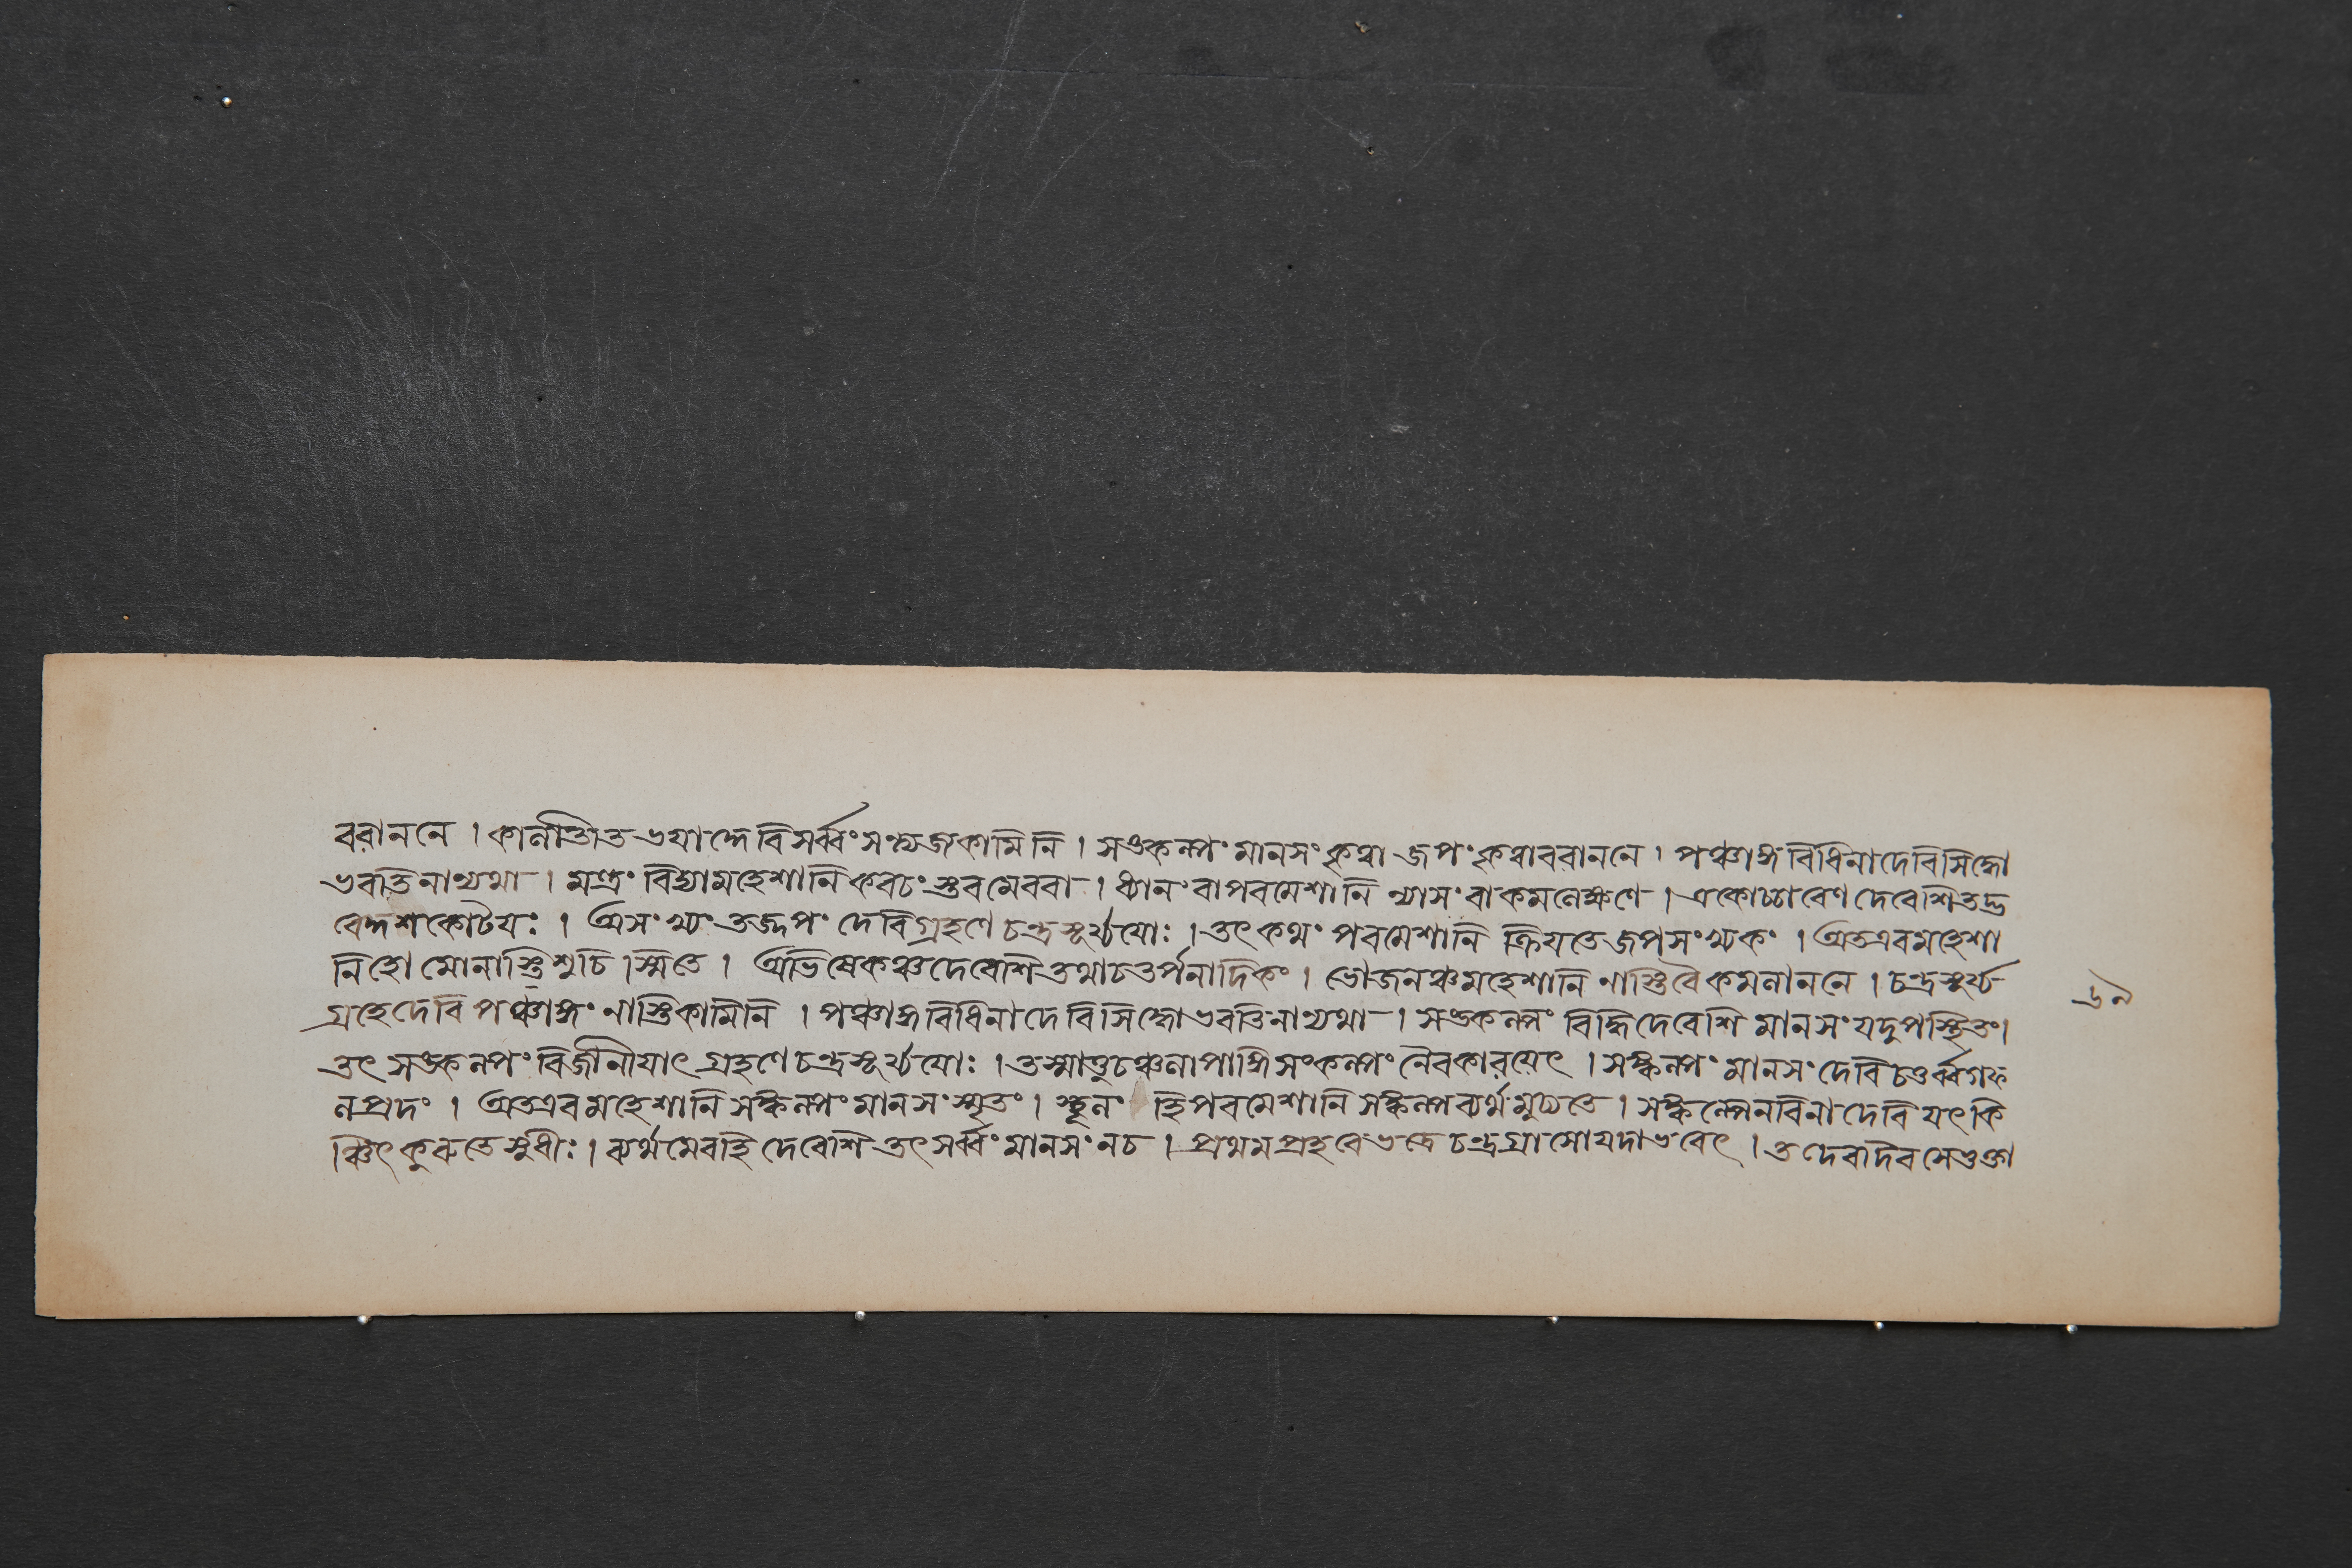 বরাননে । কালাতীত ভয়াদ্দেবি সর্ব্বং সন্ত্যজ কামিনি । সঙ্কল্পং মানসং কৃত্বা জপং কৃত্বা বরাননে । পঞ্চাঙ্গ বিধিনা দেবি সিদ্ধো
ভবতি নান্যথা । মন্ত্রং বিদ্যা মহেশানি কবচং স্তবমেববা । ধ্যানং বা পরমেশানি ন্যাসং বা কমলেক্ষণে । একোচ্চারেণ দেবেশি
কোটয়ঃ । অসংখ্যং তজ্জপং দেবি গ্রহণে চন্দ্রসূর্য্যয়োঃ । তৎ কথং পরমেশানি ক্রিয়তে জপসংখ্যকং । অতএব মহেশা
নি হোমোনাস্তি শুচিস্মিতে । অভিষেকঞ্চ দেবেশি তথাচ তর্পনাদিকং । ভোজনঞ্চ মহেশানি নাস্তি বৈ কমলাননে । চন্দ্রসূর্য্য
গ্রহে দেবি পঞ্চাঙ্গং নাস্তি কামিনি । পঞ্চাঙ্গ বিধিনা দেবি সিদ্ধো ভবতি নান্যথা । সঙ্কল্পং বিদ্ধি দেবেশি মানসং যদুপস্থিতং ।
তৎ সঙ্কল্পং বিজানীয়াৎ গ্রহণে চন্দ্রসূর্য্যয়োঃ । তস্মাত্তু চঞ্চলাপাঙ্গি সংকল্পং নৈব কারয়েৎ । সঙ্কল্পং মানসং দেবি চতুর্ব্বর্গফ
লপ্রদং । অতএব মহেশানি সঙ্কল্পং মানসং স্মৃতং । স্থূলং হি পরমেশানি সঙ্কল্প ব্যর্থমুচ্যতে । সঙ্কল্পেন বিনা দেবি যৎকি
ঞ্চিৎ কুরুতে সুধীঃ । ব্যর্থমেবহি দেবেশি তৎ সর্ব্বং মানসং নচ । প্রথম প্রহরে ভদ্রে চন্দ্রগ্রাসো যদা ভবেৎ । তদেব দিবসে